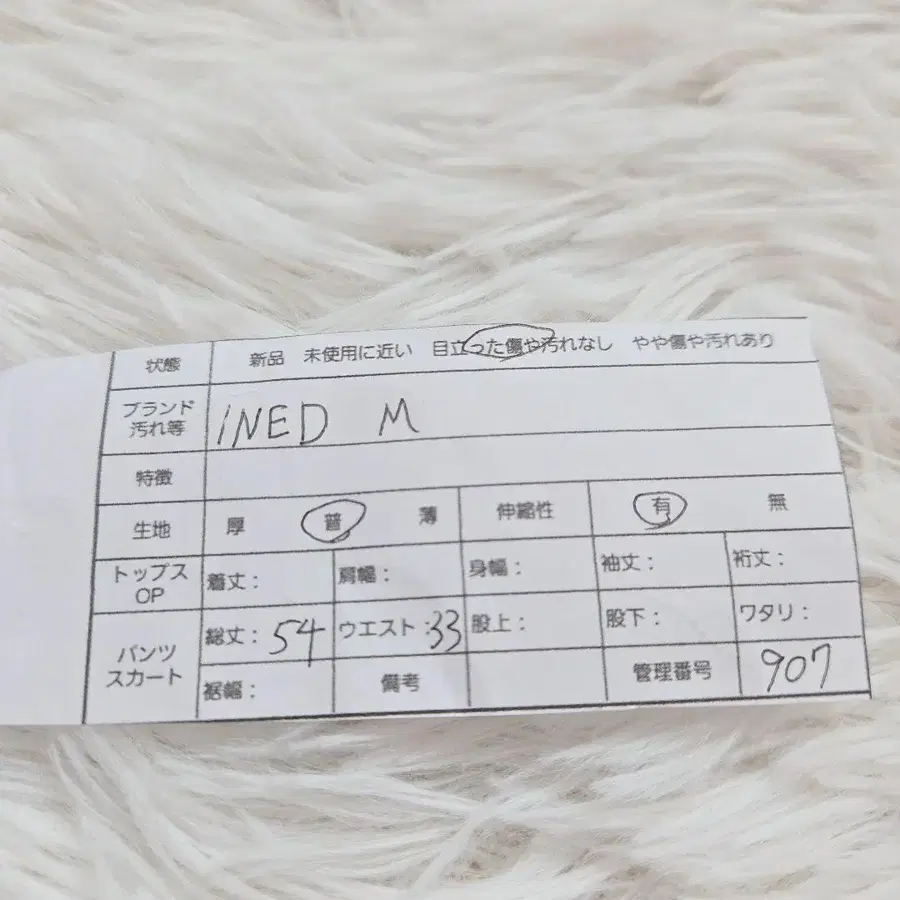 状態 新品 未使用に近い 目立った傷や汚れなし やや傷や汚れあり
ブランド
汚れ等 INED M
特徴
生地 厚 普 薄 伸縮性 有 無
トップス
OP 着丈： 肩幅： 身幅： 袖丈： 裄丈：
パンツ
スカート 総丈：54 ウエスト：33 股上： 股下： ワタリ：
裾幅： 備考 管理番号 907